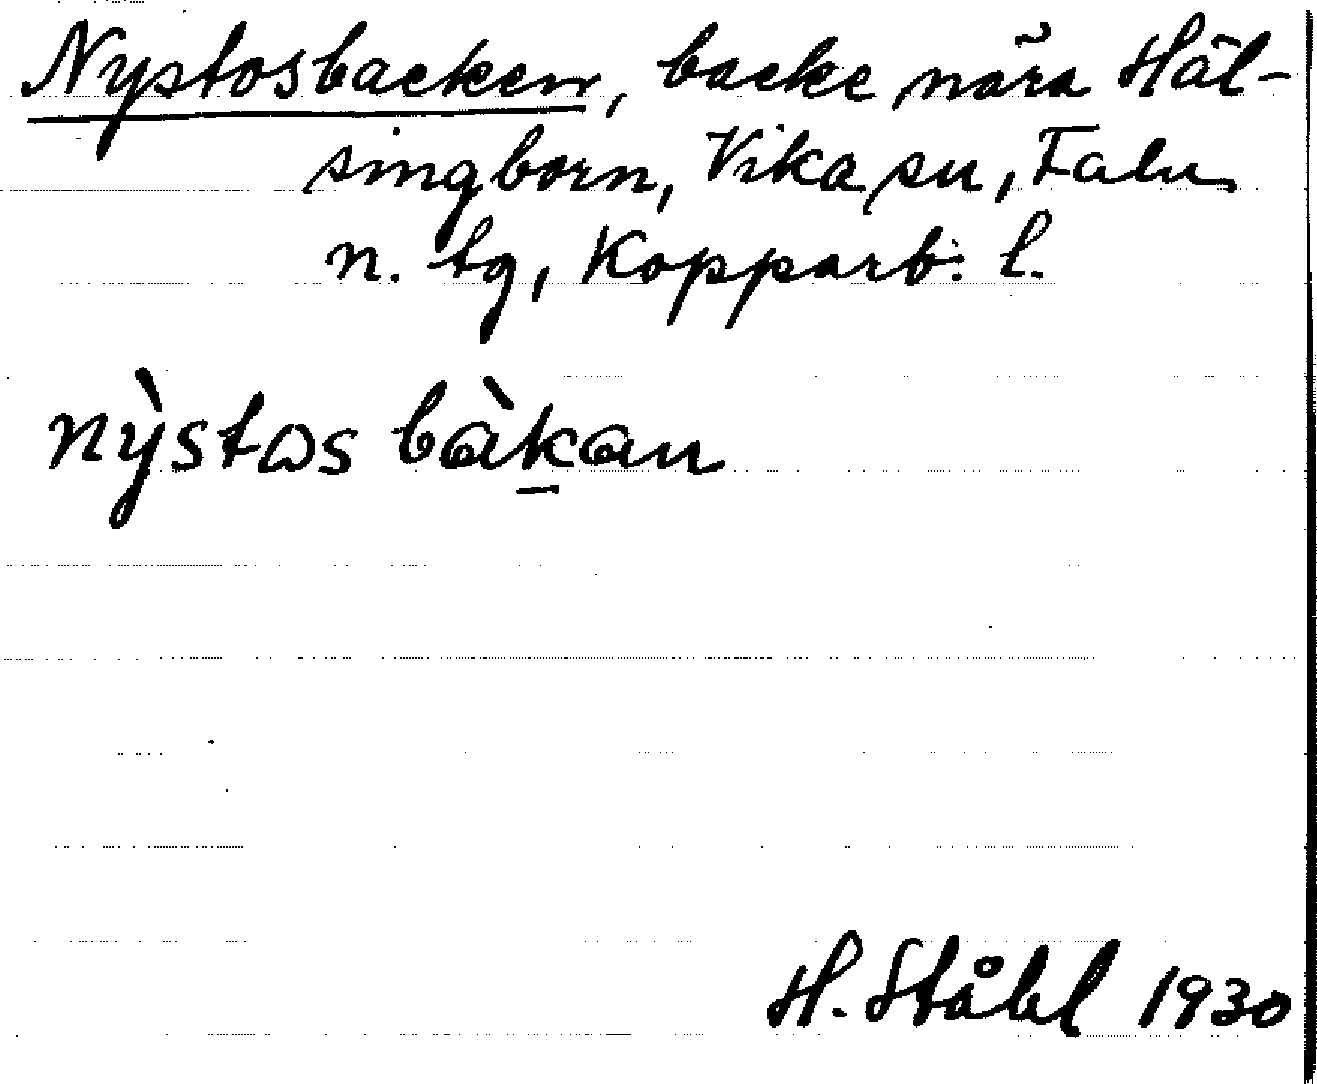 Nystosbacken, backe nära Häl-
singborn, Vika sn, Falu
n. tg, Kopparb. l.
nỳstɷs bàk̲an
H. Ståhl 1930